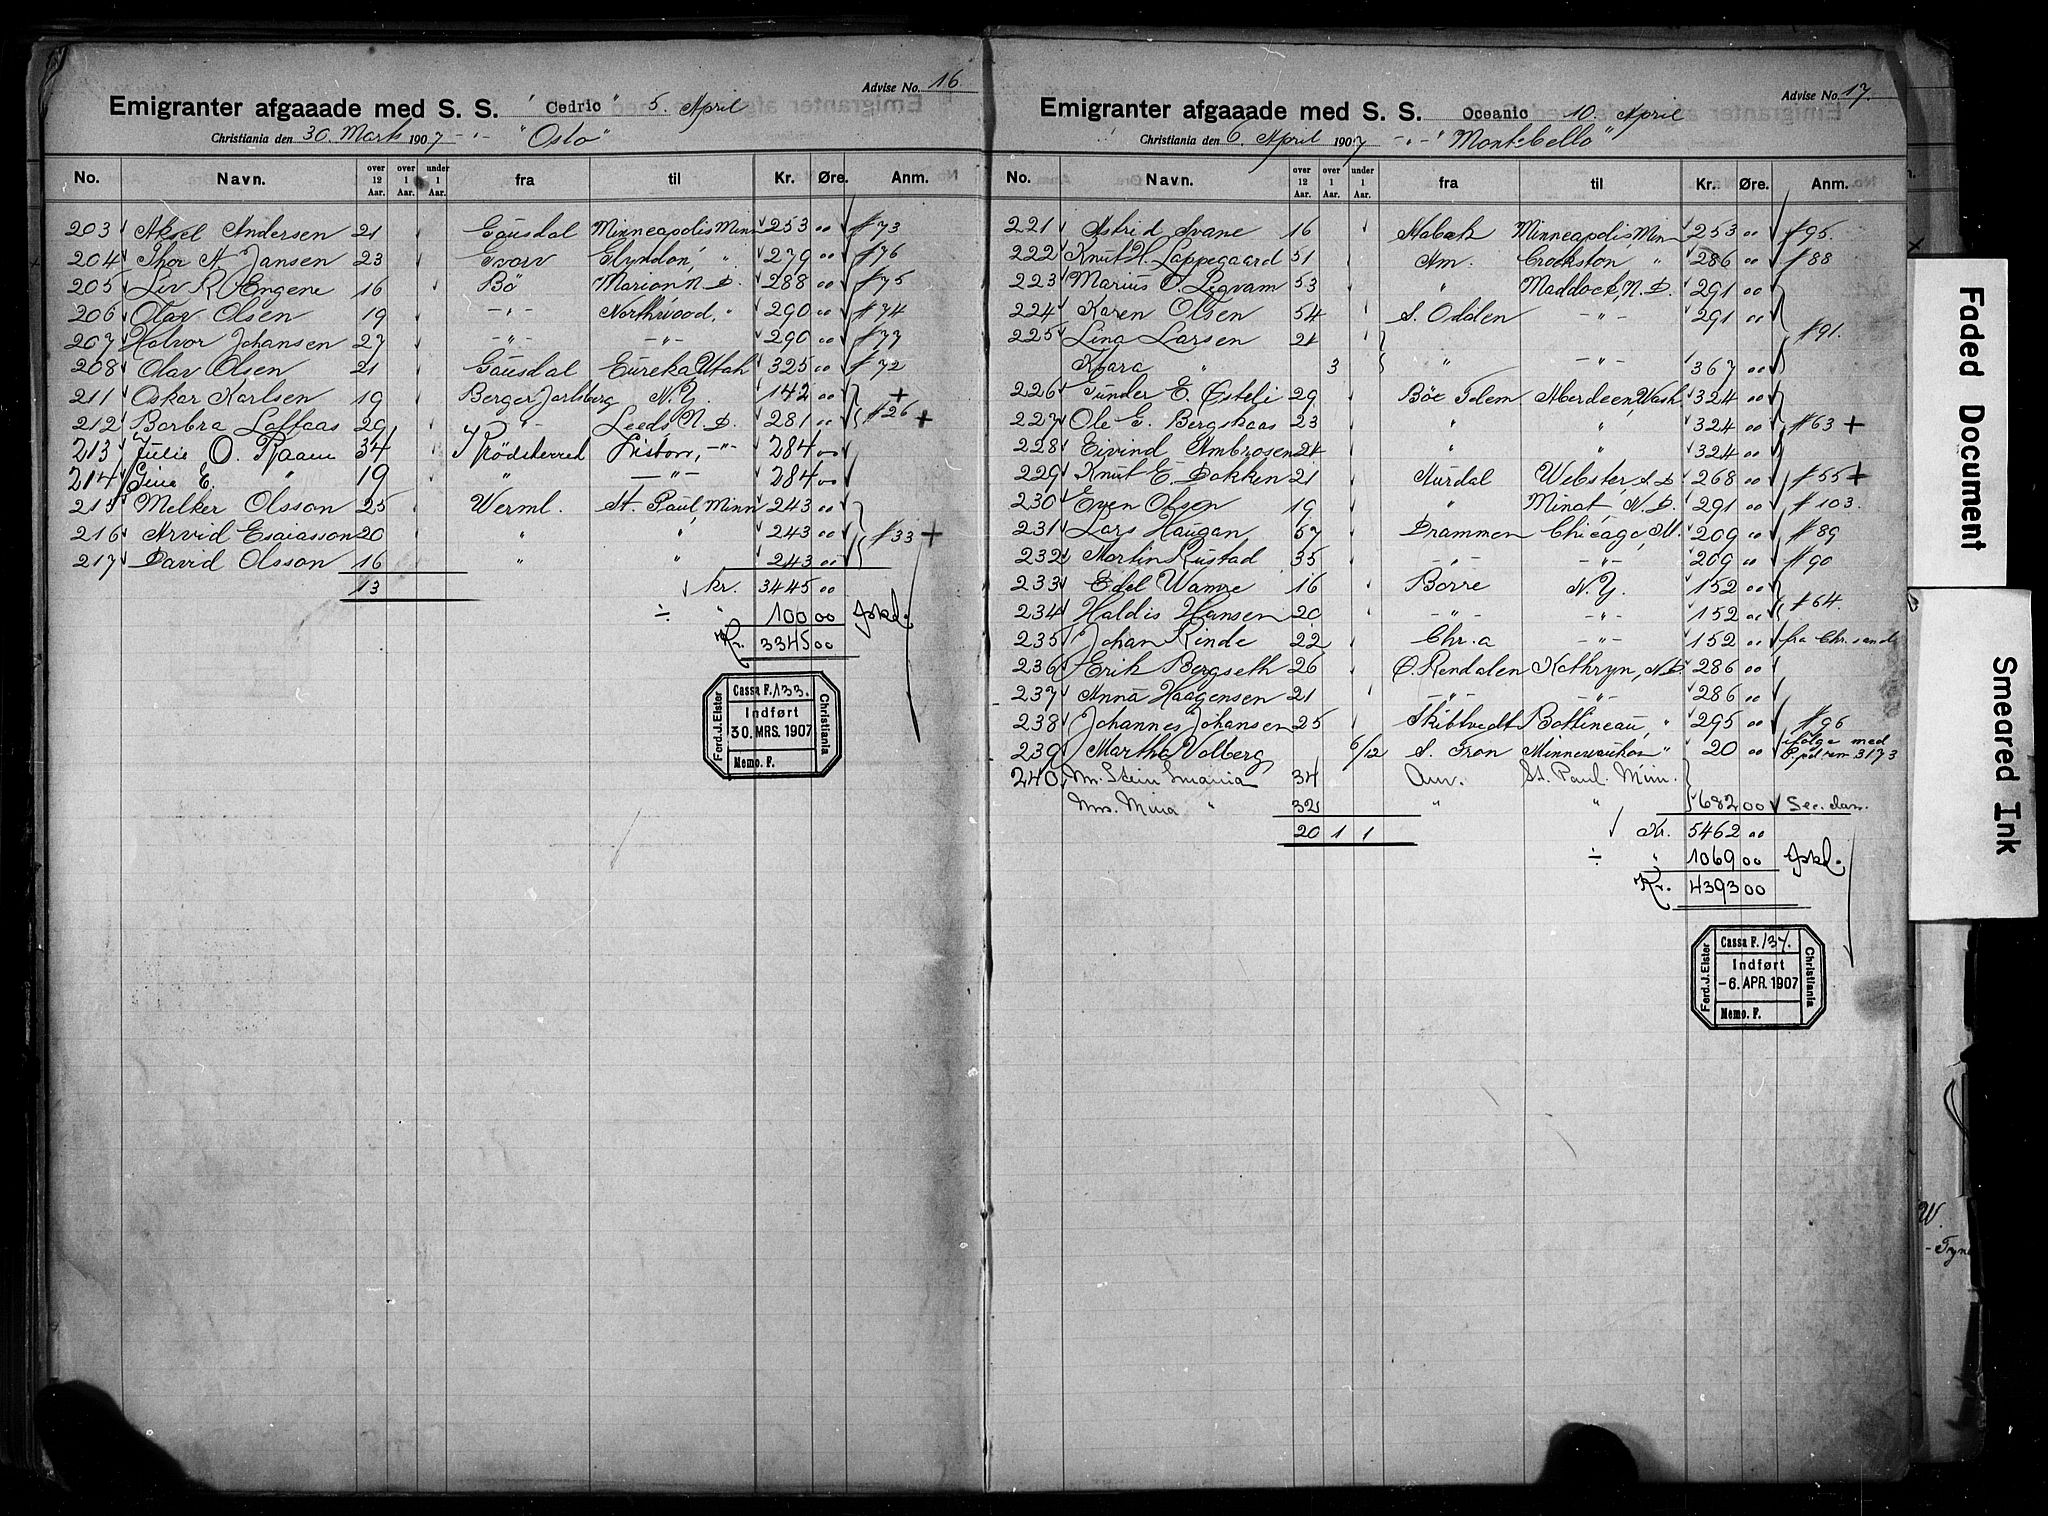 Advise No. 16
Emigranter afgaaade med S. S. "Cedric" 5. April
Christiania den 30. Marts 1907 -"- "Oslo"
No. Navn. over 12 Aar. over 1 Aar. under 1 Aar. fra til Kr. Øre. Anm.
203 Aksel Andersen 21 Gausdal Minneapolis Minn 253 00 #73
204 Thor A Jansen 23 Glyndon, " 279 00 #76
205 Liv R Engene 16 Bö Marion N. D. 288 00 #75
206 Olav Olsen 19 -"- Northwood, " 290 00 #74
207 Halvor Johansen 27 -"- -"- 290 00 #77
208 Olav Olsen 21 Gausdal Eureka Utah 325 00 #72
211 Oskar Karlsen 19 Berger Jarlsberg N. Y. 142 00 +
212 Barbra Loftaas 29 "- Leeds N. D. 281 00 #26 +
213 Julie O. Raaen 34 Krödsherred -"- 284 00
214 Gina E. " 19 " -"- 284 00
215 Melker Olsson 25 Werml. St. Paul, Minn 243 00
216 Arvid Esaiasson 20 " " 243 00 #33 +
217 David Olsson 16 " " 243 00
13 kr. 3445 00
÷ " 100 00
Kr. 3345 00
Ferd. J. Elster
Cassa F. 133.
Indført
30. MRS. 1907
Memo. F.
Christiania
Advise No. 17.
Emigranter afgaaade med S. S. Oceanic 10. April
Christiania den 6. April 1907 -"- "Montebello"
No. Navn. over 12 Aar. over 1 Aar. under 1 Aar. fra til Kr. Øre. Anm.
221 Astrid Svane 16 Minneapolis Minn 253 00 #95
222 Knut H. Lappegaard 51 Am. Crookston " 286 00 #88
223 Marius O. 53 " Maddock, N. D. 291 00
224 Karen Olsen 54 S. Odden -"- 291 00
225 Lina Larsen 21 #91.
Klara " 3 " -"- 367 00
226 Gunder E. Østeli 29 Böe Telem Aberdeen, Wash 324 00
227 Ole G. Bergskaas 23 " " 324 00 #63 +
228 Eivind Ambrosen 24 " " 324 00
229 Knut E. Dokken 21 Aurdal Webster, S. D 268 00 #55 +
230 Even Olsen 19 " Minot N. D. 291 00 #103.
231 Lars Haugan 57 Drammen Chicago, Ill. 209 00 #89
232 Martin Rustad 35 -"- -"- 209 00 #90
233 Edel Wamre 16 Borre N. Y. 152 00
234 Haldis Hansen 20 -"- -"- 152 00 #64.
235 Johan Rinde 22 Chr.a -"- 152 00 fra Chr.sand
236 Erik Bergseth 26 Ø. Rendalen Kathryn, N. D. 286 00
237 Anna Haagensen 21 -"- -"- 286 00
238 Johannes Johansen 25 Skibtvedt Bottineau, " 295 00 #96
239 Martha Volberg 6/12 S. Fron Minnewaukon " 20 00 ifølge med 3173
240 Mr. Stein Smania 34 Am. St. Paul. Minn.
Mrs. Mina " 32 " " 682 00 Sec. clam.
20 1 1 Kr. 5462 00
÷ " 1069 00
Kr. 4393 00
Ferd. J. Elster
Cassa F. 134.
Indført
-6. APR. 1907
Memo. F.
Christiania
Faded Document
Smeared Ink